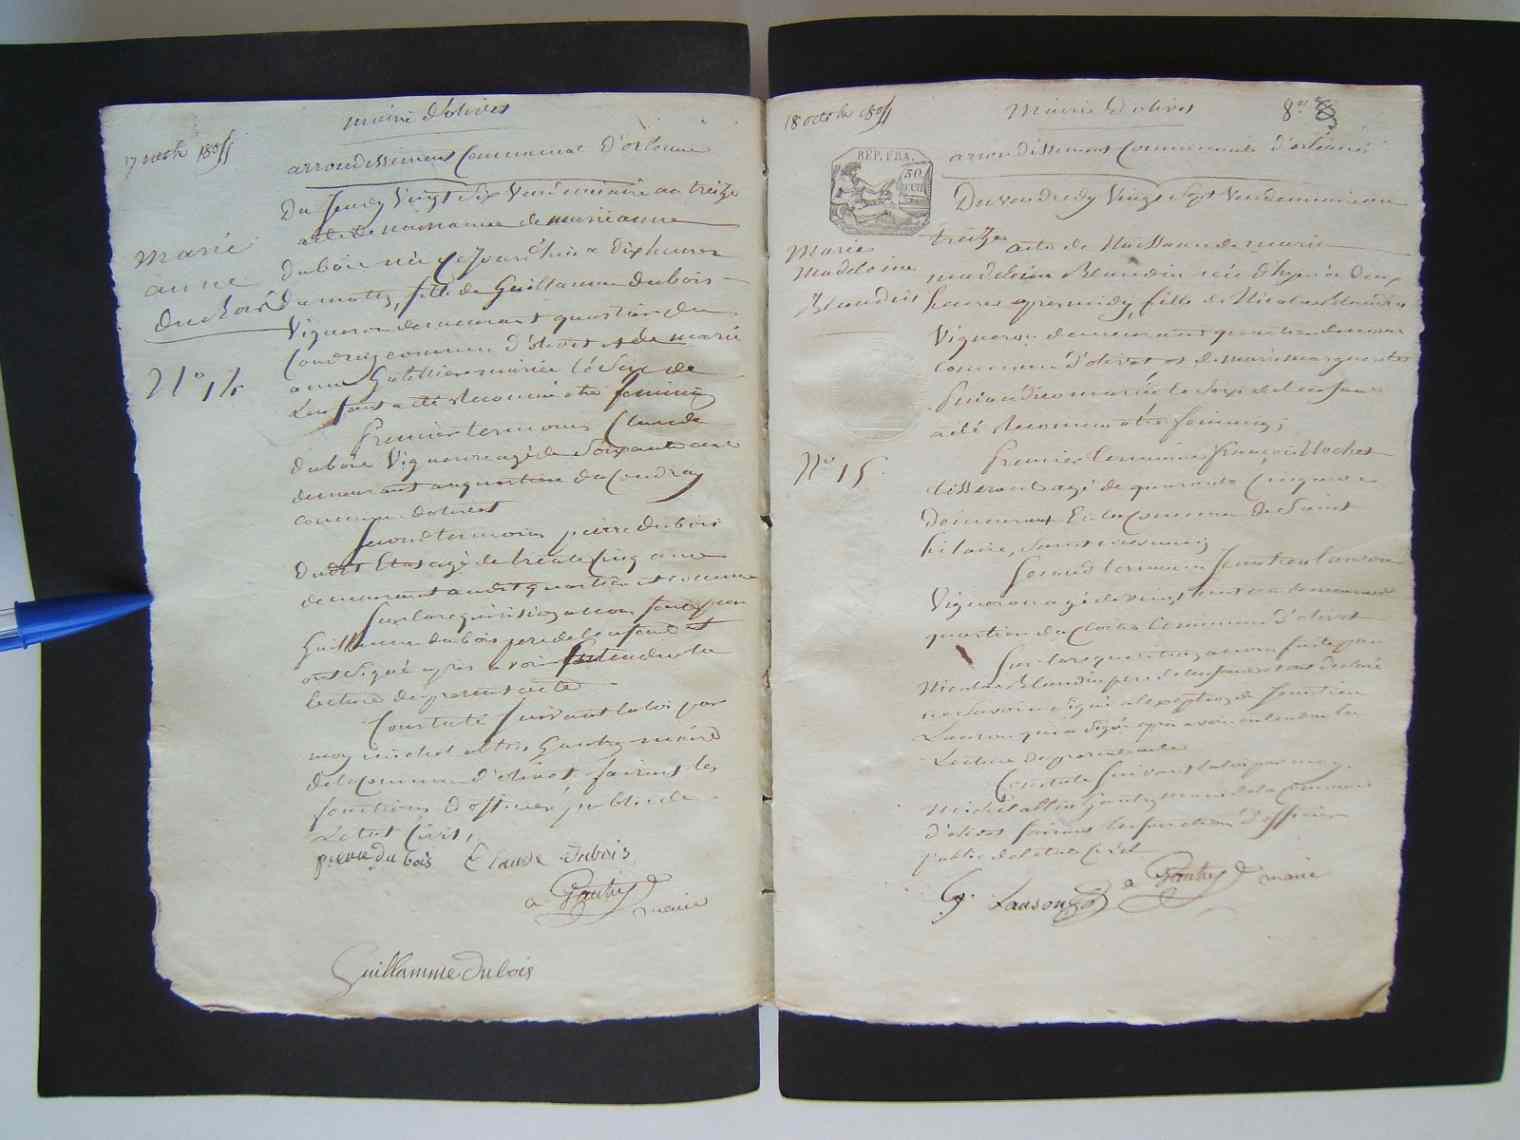 mairie d'olivet
arrondissement Communal d'orleans
Du Jeudy Vingt Six Vendémiaire an treize
acte de naissance de marie anne
dubois née ce jourd'hui a dix heures
du matin, fille de Guillaume dubois
Vigneron demeurant quartier du
Coudray commune d'olivet et de marie
anne mariée le Sexe de
L'enfant a été reconnu etre feminin
Premier temoin Claude
dubois Vigneron agé de Soixante ans
demeurant au quartier du Coudray
commune d'olivet
Second temoin pierre dubois
agé de trente Cinq ans
demeurant audit quartier et commune
Sur la requisition a nous faite par
Guillaume dubois pere de l'enfant et
ont signé après avoir Entendu la
lecture du present acte
Constaté Suivant la loi par
moy michel Gautry maire
de la Commune d'olivet faisant les
fonctions d'officier public de
L'etat Civil,
pierre du bois Claude dubois
Gautry
maire
Guillaumme dubois
marie
anne
dubois
N° 14
18 octobre
Mairie d'olivet
8
arrondissement Communal d'orleans
REP. FRA.
50
Du vendredy Vingt Sept Vendemiaire an
treize acte de Naissance de marie
madeleine Blandin née d'hyer a deux
heures apres midy, fille de Nicolas Blandin
Vigneron demeurant quartier
commune d'olivet et de marie marguerite
mariée le Sexe de l'enfant
a été reconnu etre feminin;
Premier temoin françois
tisserand agé de quarante Cinq ans
Demeurant En la Commune de Saint
hilaire, Saint mesmin
Second temoin
Vigneron agé de vingt ans demeurant
quartier du Commune d'olivet
Sur la requisition a nous faite par
Nicolas Blandin pere de l'enfant ont declaré
ne Savoir Signé a l'exception de
Lanson qui a Signé apres avoir entendu la
Lecture du present acte
Constaté Suivant la loi par moy
Michel Gautry maire de la Commune
d'olivet faisant les fonctions d'officier
public de l'etat Civil
Lanson Gautry maire
Marie
Madeleine
Blandin
N° 15